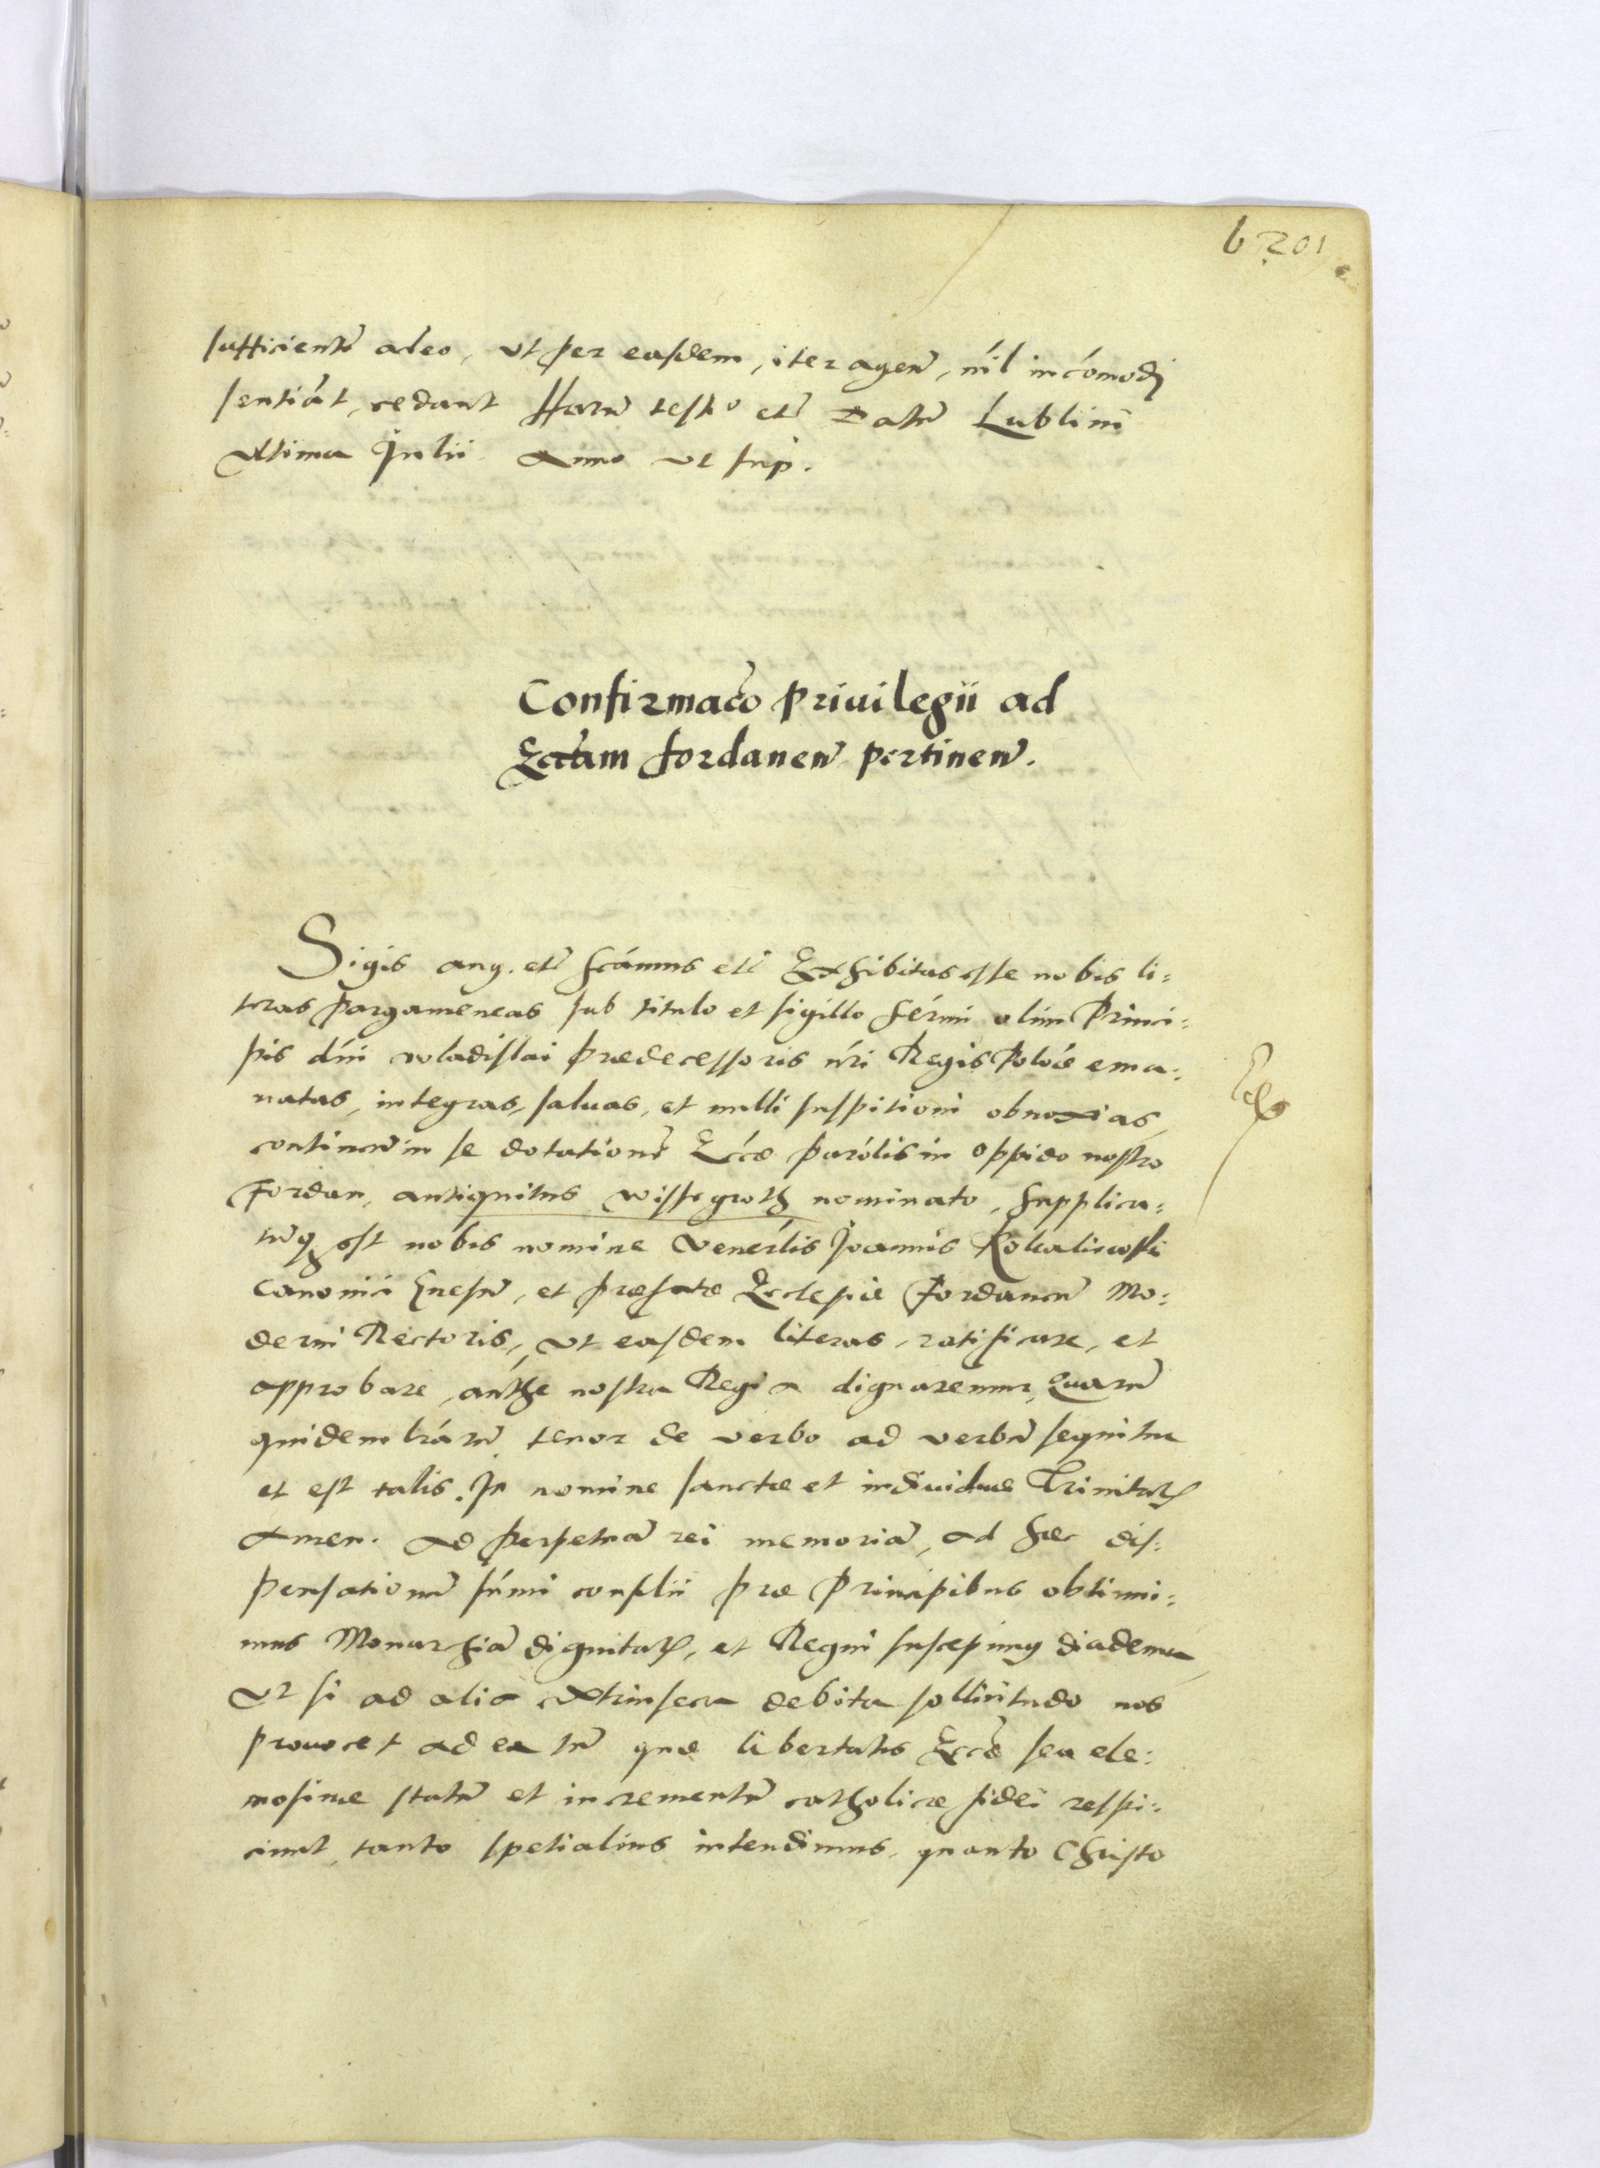 b 201
sufficientē adeo, ut per easdem, iter agen̄, nil incōmodj
sentiāt, cedant Harū testō etc̄ Datū Lublini
ultima Julii Anno ut sup.
Confirmac̄o Privilegii ad
Eccl̄am fordanen̄ pertinen̄.
Sigis aug. etc̄ scāmus etc̄ Exhibitas esse nobis li:
teras pargameneas sub titulo et sigillo sērmi olim Princi:
pis dn̄i vladislai prædecessoris nr̄i Regis Polōē ema:
natas, integras, salvas, et nulli suspitioni obnoxias,
continen̄ in se dotationē Ecc̄æ parōlis in oppido nostro
Fordan, antiquitus wissegroth nominato, supplica:
tūq est nobis nomine venerl̄is Joannis Kokaliewski
Canonici Gnesn̄, et præfatæ Ecclesiæ Fordanen̄ Mo:
derni Rectoris, ut easdem literas, ratificare, et
approbare, aūthe nostra Regia dignaremur, Quarū
quidem lrārū tenor de verbo ad verbū sequitur
et est talis. In nomine sanctæ et individuæ Trinitatis
Amen. Ad perpetuā rei memoriā, ad hæc dis:
pensationē sūmi consilii præ Principibus obtinui:
mus Monarchiā dignitatis, et Regni suscepimus diadema,
Ut si ad alia extrinseca debita sollicitudo nos
provocet ad ea tn̄ quæ libertatis Ecc̄æ seu ele:
mosinæ statū et incrementū catholicæ fidei respi:
ciunt, tanto spetialius intendimus, quanto Christo